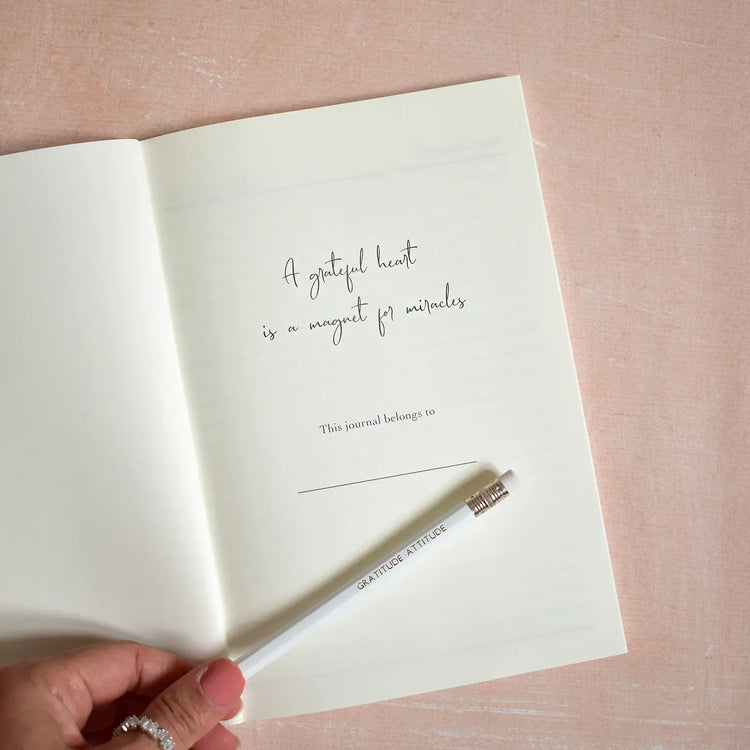 A grateful heart
is a magnet for miracles
This journal belongs to
GRATITUDE ATTITUDE